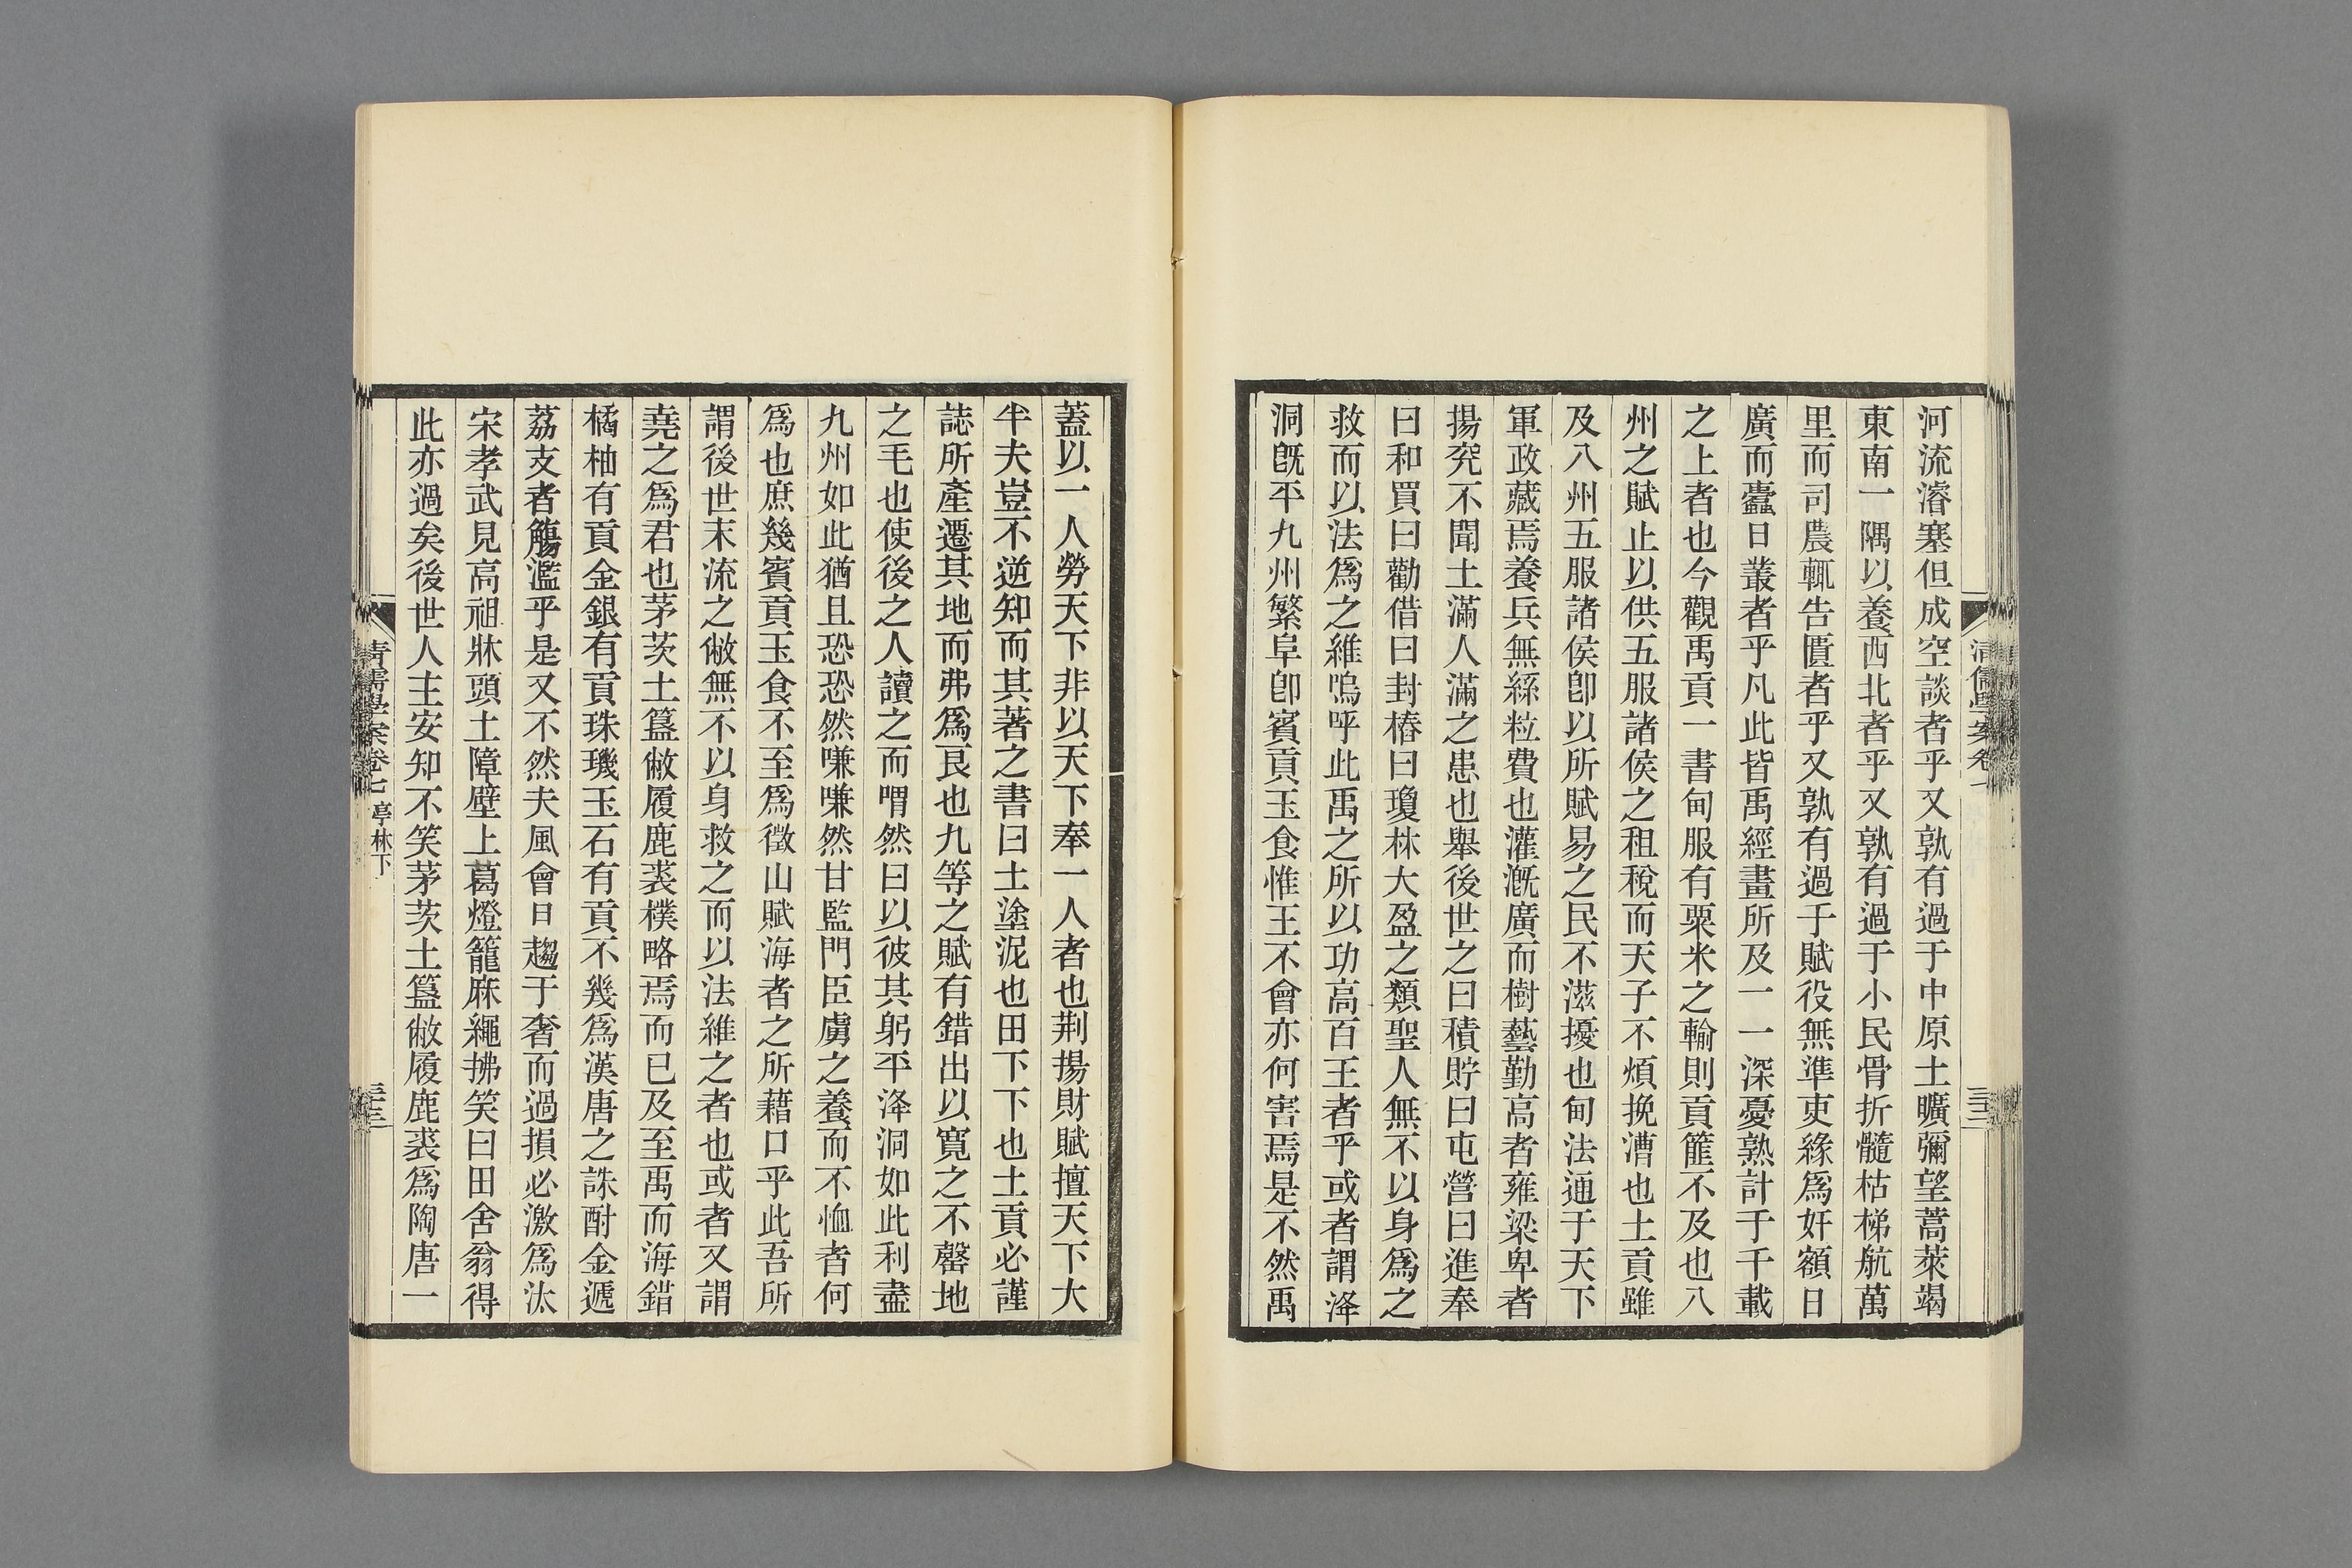 河流濬塞但成空談者乎又孰有過于中原土曠彌望蒿萊竭
東南一隅以養西北者乎又孰有過于小民骨折髓枯梯航萬
里而司農輒告匱者乎又孰有過于賦役無準吏緣爲奸額日
廣而蠹日叢者乎凡此皆禹經畫所及一一深憂熟計于千載
之上者也今觀禹貢一書甸服有粟米之輸則貢篚不及也八
州之賦止以供五服諸侯之租稅而天子不煩挽漕也土貢雖
及八州五服諸侯卽以所賦易之民不滋擾也甸法通于天下
軍政藏焉養兵無絲粒費也灌漑廣而樹藝勤高者雍梁卑者
揚兖不聞土滿人滿之患也舉後世之曰積貯曰屯營曰進奉
曰和買曰勸借曰封樁曰瓊林大盈之類聖人無不以身爲之
救而以法爲之維嗚呼此禹之所以功高百王者乎或者謂洚
洞旣平九州繁阜卽賓貢玉食惟王不會亦何害焉是不然禹
蓋以一人勞天下非以天下奉一人者也荆揚財賦擅天下大
半夫豈不逆知而其著之書曰土塗泥也田下下也土貢必謹
誌所產遷其地而弗爲艮也九等之賦有錯出以寬之不罄地
之毛也使後之人讀之而喟然曰以彼其躬平洚洞如此利盡
九州如此猶且恐恐然嗛嗛然甘監門臣虜之養而不恤者何
爲也庶幾賓貢玉食不至爲徵山賦海者之所藉口乎此吾所
謂後世末流之敝無不以身救之而以法維之者也或者又謂
堯之爲君也茅茨土簋敝履鹿裘樸略焉而已及至禹而海錯
橘柚有貢金銀有貢珠璣玉石有貢不幾爲漢唐之誅酎金遞
荔支者觴濫乎是又不然夫風會日趨于奢而過損必激爲汰
宋孝武見高祖牀頭土障壁上葛燈籠麻繩拂笑曰田舍翁得
此亦過矣後世人主安知不笑茅茨土簋敝履鹿裘爲陶唐一
清儒學案卷七 亭林下